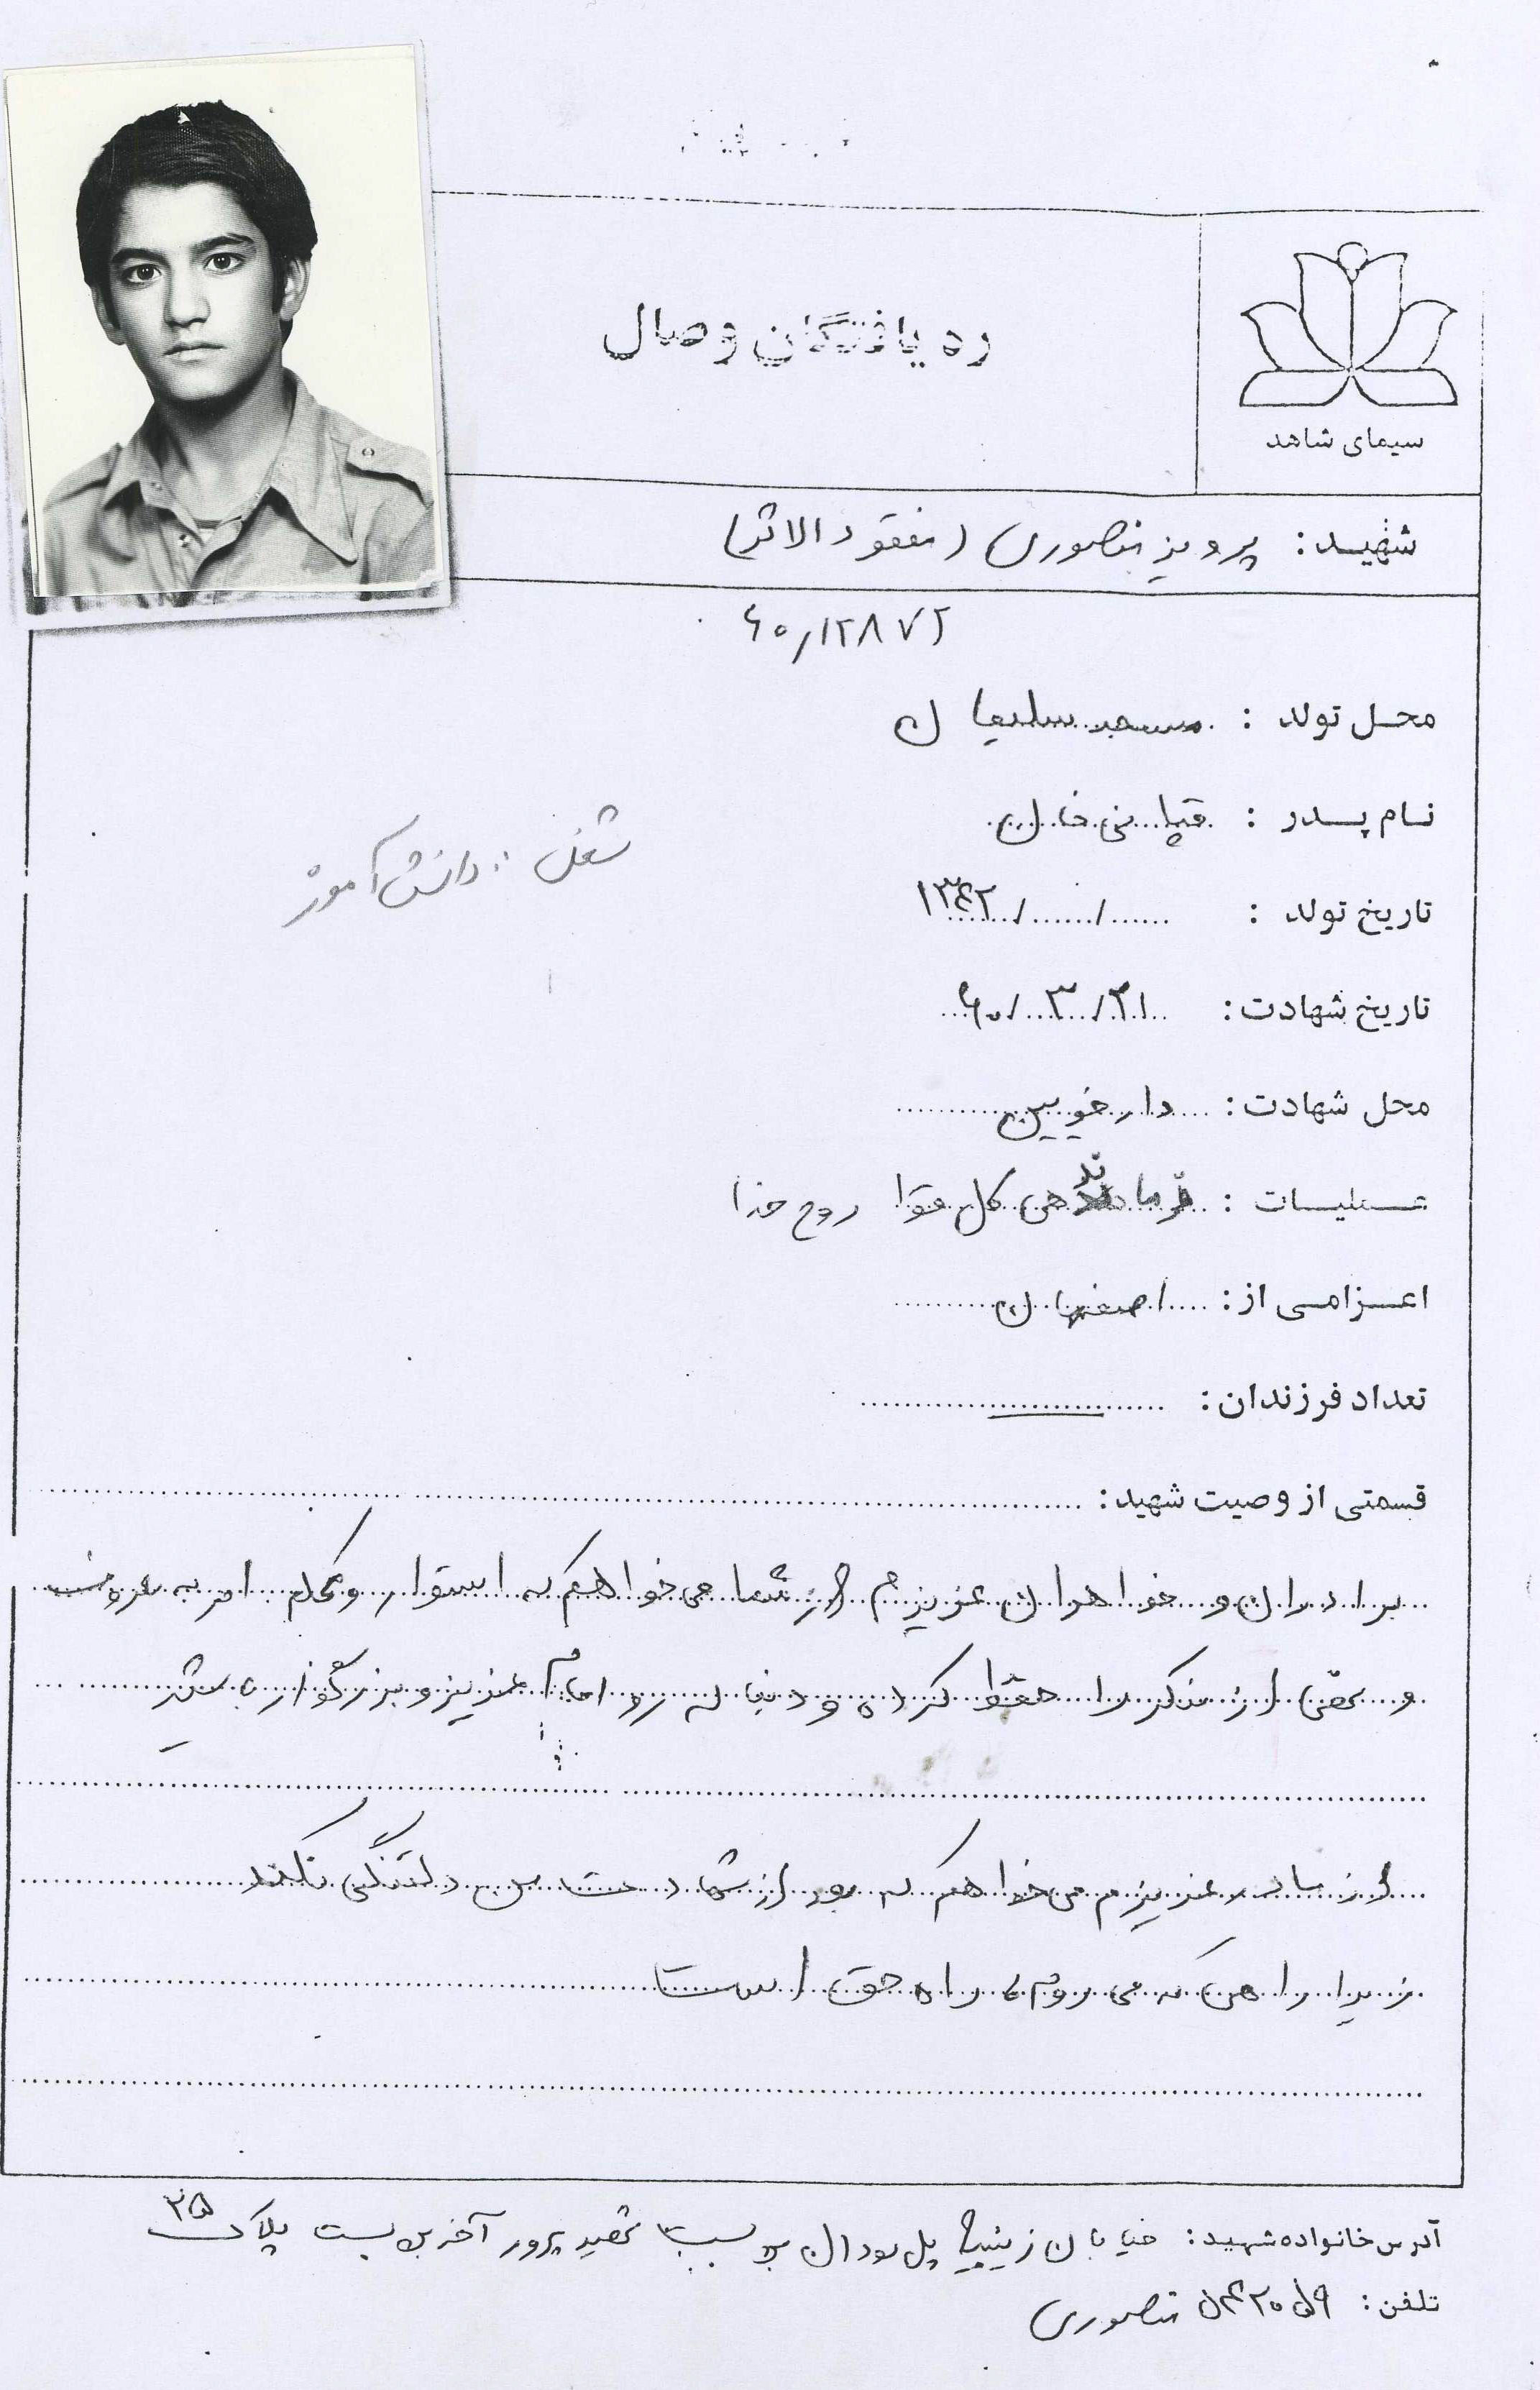 ره یافتگان وصال
سیمای شاهد
شهید: پرویز منصوری (مفقودالاثر)
۶۰/۱۲۸۷۲
محل تولد: مسجد سلیمان
نام پدر: خان
شغل: دانش آموز
تاریخ تولد: / / ۱۳۴۲
تاریخ شهادت: ۲۱/ ۳/ ۶۰
محل شهادت: دارخویین
عملیات: فرماندهی کل قوا روح خدا
اعزامی از: اصفهان
تعداد فرزندان:
قسمتی از وصیت شهید:
برادران و خواهران عزیزم از شما می خواهم که استوار و محکم امر به معروف
و نهی از منکر را حفظ کرده و دنباله رو امام عزیز و بزرگوار باشید
از مادر عزیزم می خواهم که بعد از شهادت من دلتنگی نکند
زیرا راهی که می روم راه حق است
آدرس خانواده شهید: خیابان زینبیه پل سودان بن بست شهید پرور آخر بن بست پلاک ۲۵
تلفن: ۵۴۲۰۵۹ منصوری